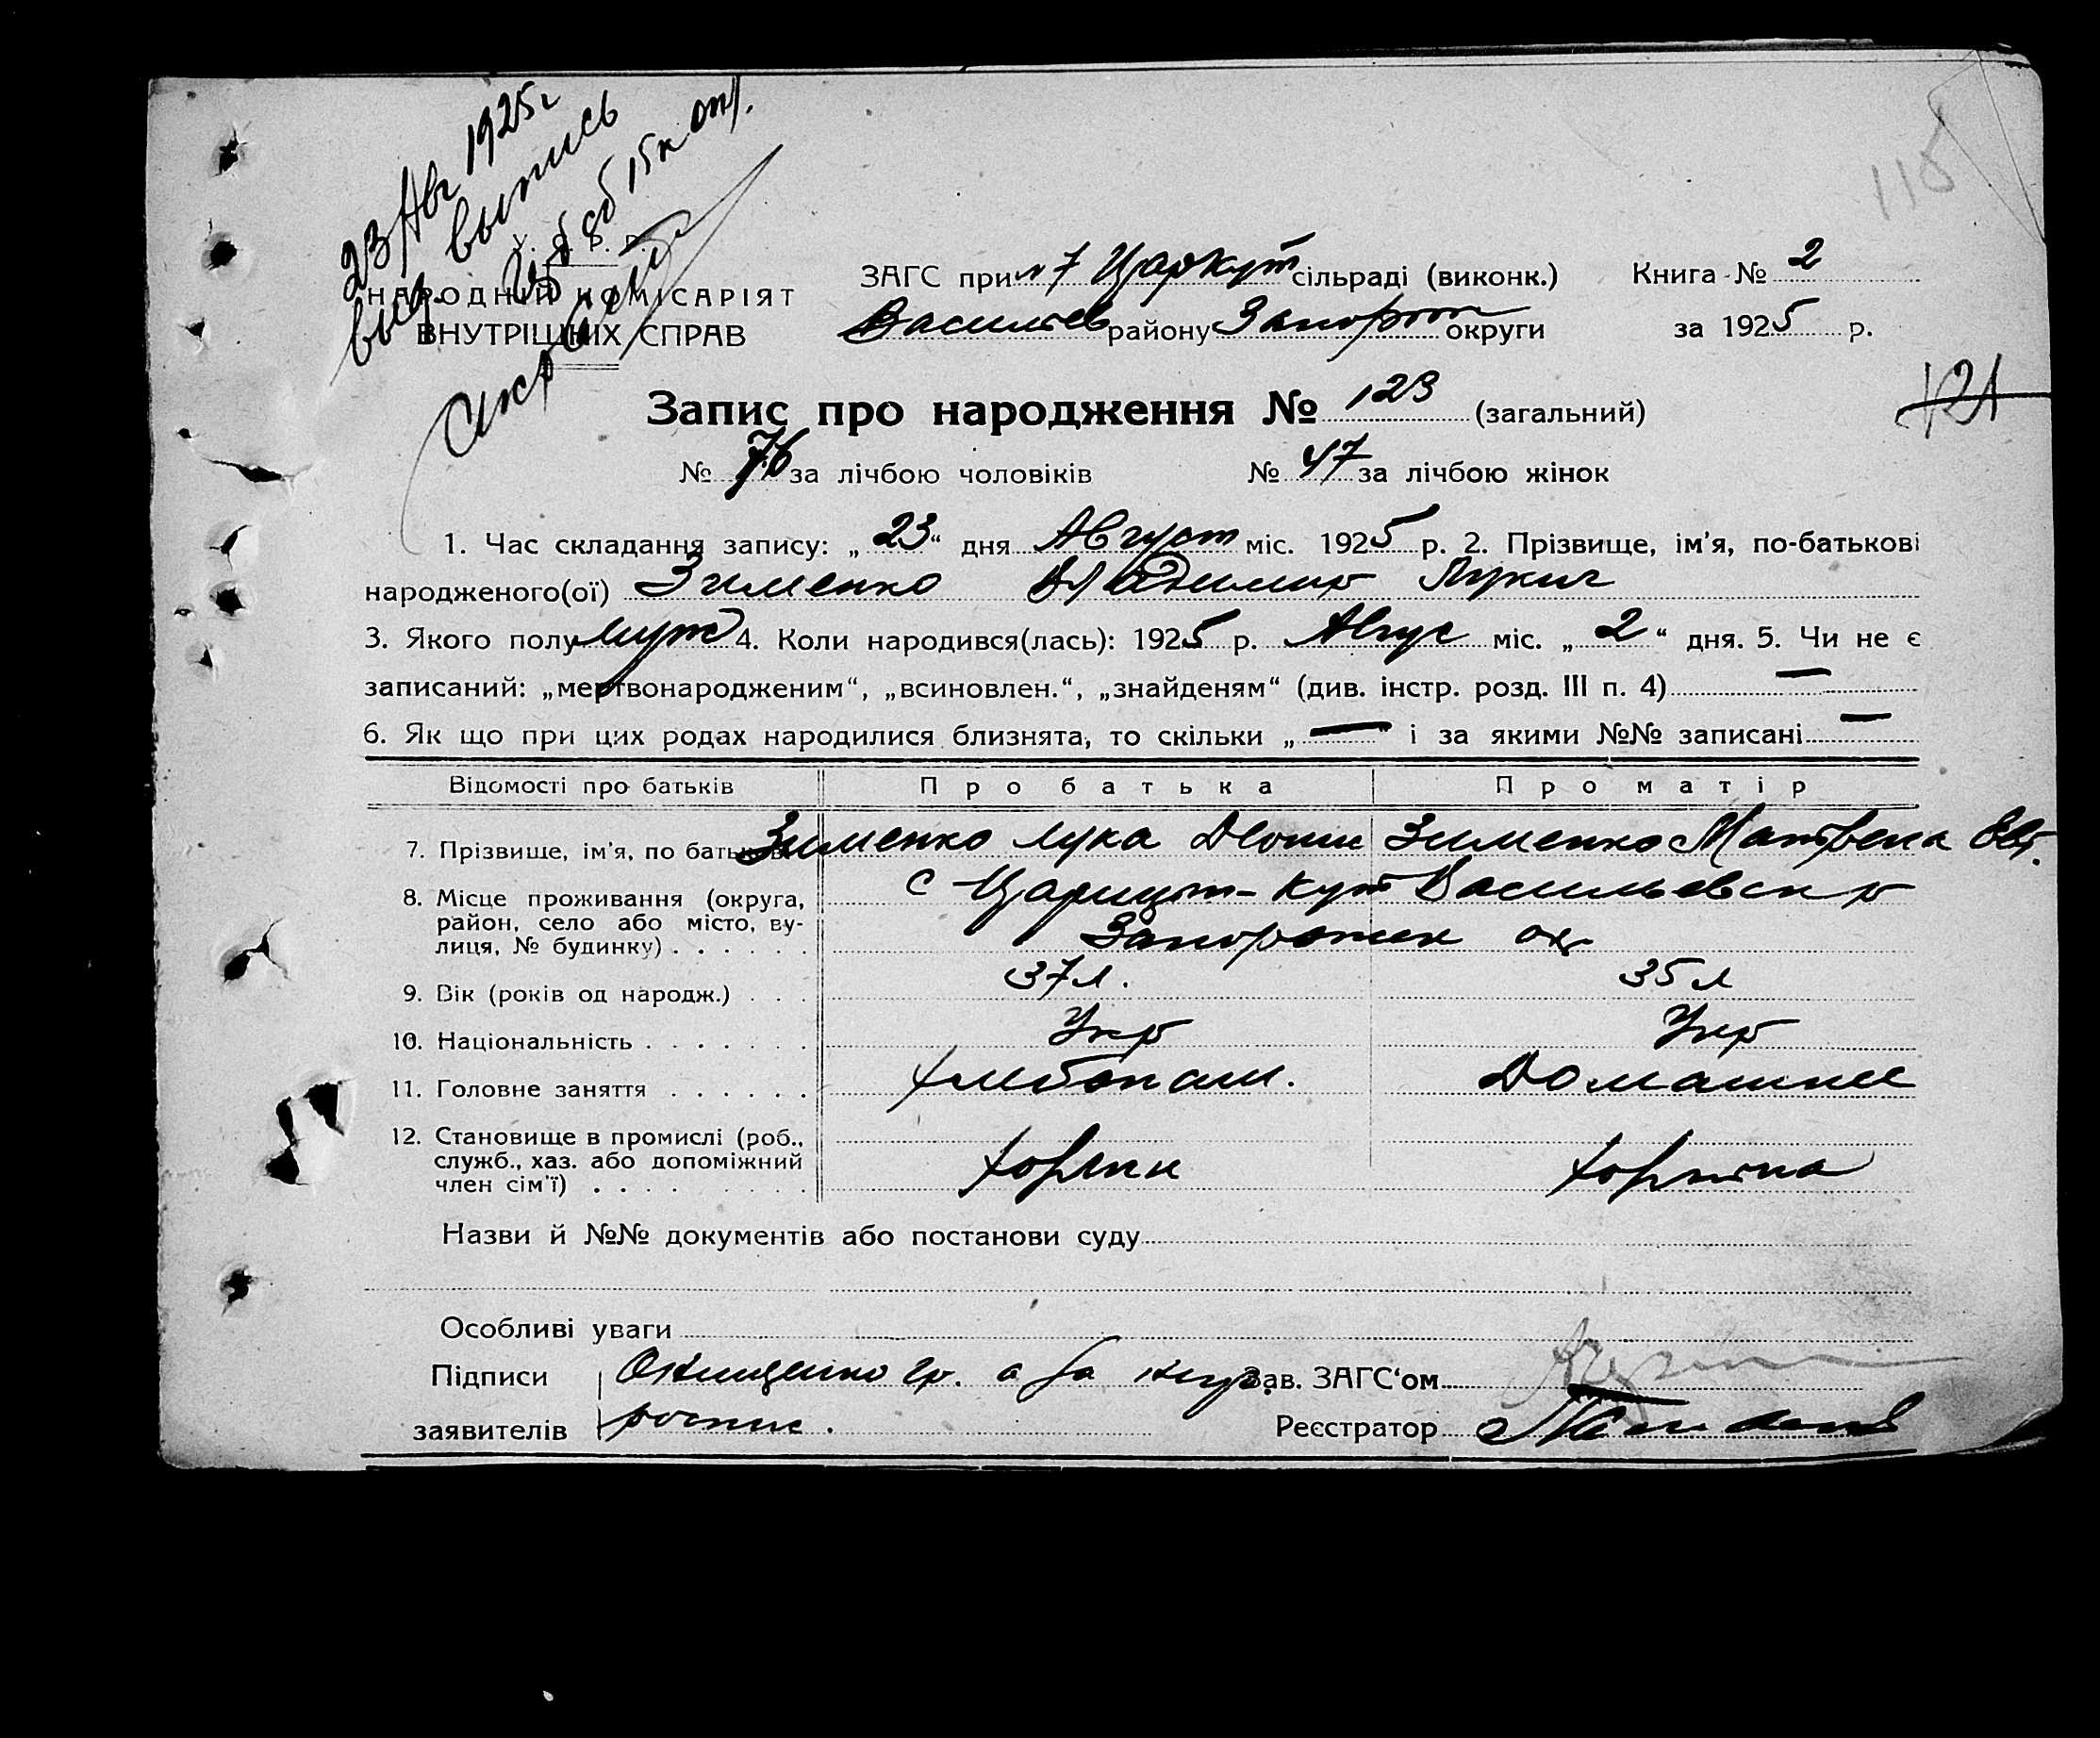 23 Авг 1925 г
выд. выпись
115
У. С. Р. Р.
НАРОДНІЙ КОМІСАРІЯТ
ВНУТРІШНІХ СПРАВ
ЗАГС при №7 Царкут сільраді (виконк.) Книга № 2
Васильев району Запорож округи за 1925 р.
121
Запис про народження № 123 (загальний)
№ 76 за лічбою чоловіків № 47 за лічбою жінок
1. Час складання запису: „23“ дня Август міс. 1925 р. 2. Прізвище, ім'я, по-батькові
народженого(ої) Зименко Владимир Лукич
3. Якого полу муж 4. Коли народився(лась): 1925 р. Авгус міс. „2“ дня. 5. Чи не є
записаний: „мертвонародженим“, „всиновлен.“, „знайденям“ (див. інстр. розд. III п. 4) —
6. Як що при цих родах народилися близнята, то скільки „—“ і за якими №№ записані —
Відомості про батьків Про батька Про матір
7. Прізвище, ім'я, по батькові Зименко Лука Зименко Матрена Евт.
8. Місце проживання (округа, с Царицын-Кут Васильевск р
район, село або місто, ву-
лиця, № будинку) Запорожск ок
9. Вік (років од народж.) 37 л. 35 л
10. Національність Укр Укр
11. Головне заняття Хлебопаш. Домашнее
12. Становище в промислі (роб.,
служб., хаз. або допоміжний
член сім'ї)
Назви й №№ документів або постанови суду
Особливі уваги
Підписи Онищенко гр. а за негр. Зав. ЗАГС'ом
заявителів роспис. Реєстратор